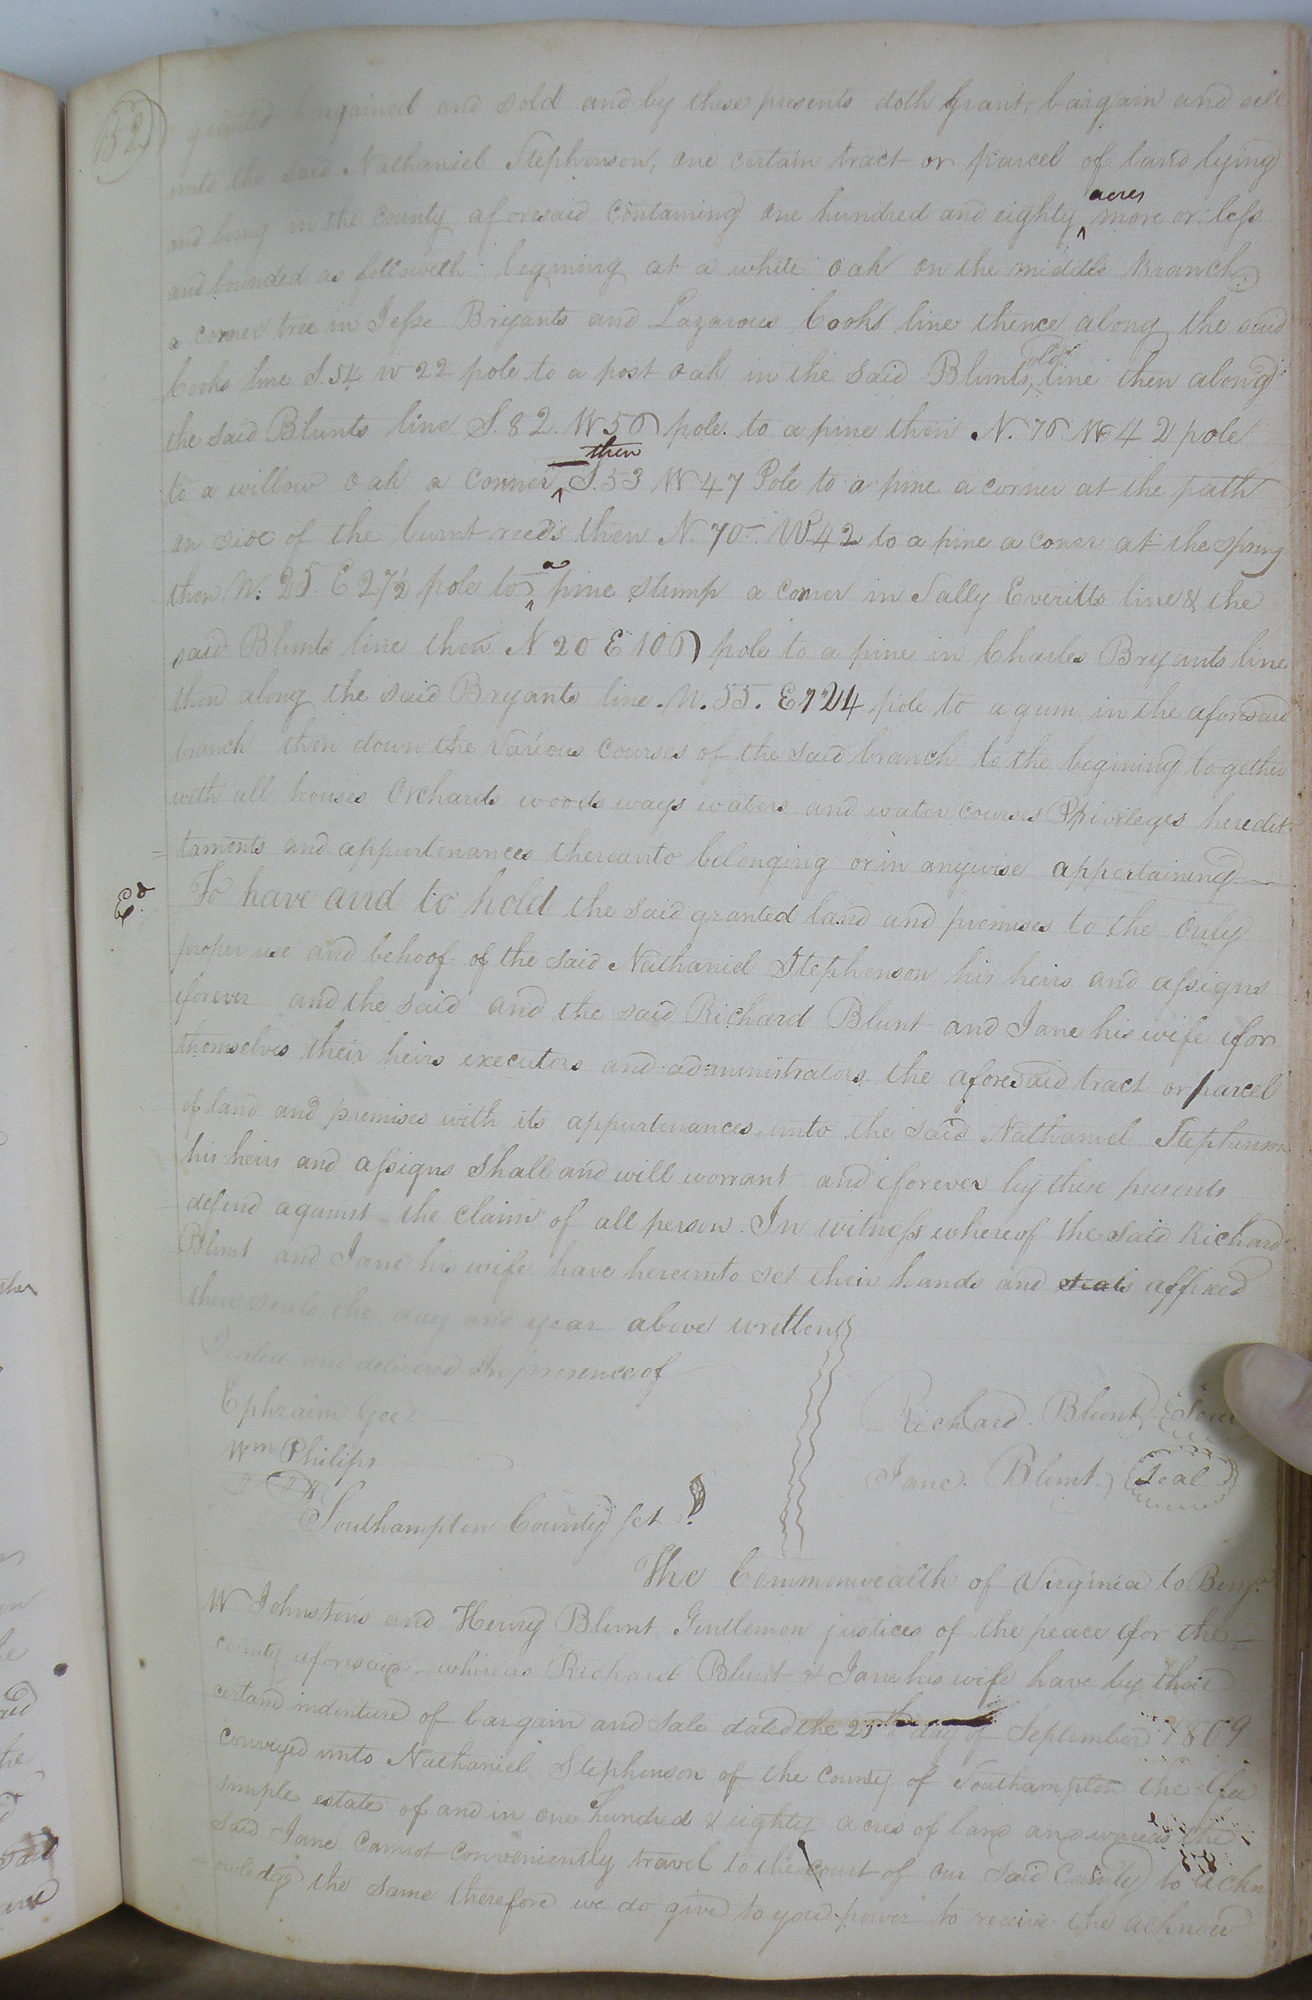 52
granted bargained and sold and by these presents doth grant, bargain and sell
unto the said Nathaniel Stephenson, one certain tract or parcel of land lying
and being in the county aforesaid containing one hundred and eighty acres more or less
and bounded as followeth begining at a white oak on the middle Branch
a corner tree in Jesse Bryants and Lazarous Cooks line thence along the said
Cooks line S. 54 W 22 pole to a post oak in the said Blunts old line then along
the said Blunts line S. 82. W 56 pole. to a pine then N. 76 W 42 pole
to a willow oak a conner then S. 53 W 47 Pole to a pine a corner at the path
on side of the burnt reeds then N. 70 W 42 to a pine a coner at the spring
then N. 25. E 27½ pole to a pine stump a corner in Sally Everitts line & the
said Blunts line then N 20 E 106 pole to a pine in Charles Bryants line
then along the said Bryants line. N. 55. E 124 pole to a gum in the aforesaid
branch then down the various courses of the said branch to the begining together
with all houses Orchards woods ways waters and water courses Privileges heredit
=taments and appurtenances thereunto belonging or in anywise appertaining
Ed To have and to hold the said granted land and premises to the only
proper use and behoof of the said Nathaniel Stephenson his heirs and assigns
forever and the said and the said Richard Blunt and Jane his wife for
themselves their heirs executors and administrators the aforesaid tract or parcel
of land and premises with its appurtenances, unto the said Nathaniel Stephenson
his heirs and assigns shall and will worrant and forever by these presents
defend against the claim of all person. In witness whereof the said Richard
Blunt and Jane his wife have hereunto set their hands and seals affixed
their seals the day and year above written
Sealed and delivered In presence of
Ephraim Gee
Richard. Blunt Seal
Wm Philips
Jane. Blunt. Seal
Southampton County Sct
The Commonwealth of Virginia to Benj.
W Johnstons and Henry Blunt Gentlemen justices of the peace for the
county aforesaid, whereas Richard Blunt & Jane his wife have by their
certain indenture of bargain and sale dated the 25th day of September 1809
conveyed unto Nathaniel Stephenson of the county of Southampton the fee
simple estate of and in one hundred & eighty acres of land and wareas the
said Jane cannot conveniently travel to the court of our said County to ackn
owledge the same therefore we do give to you power to receive the acknow